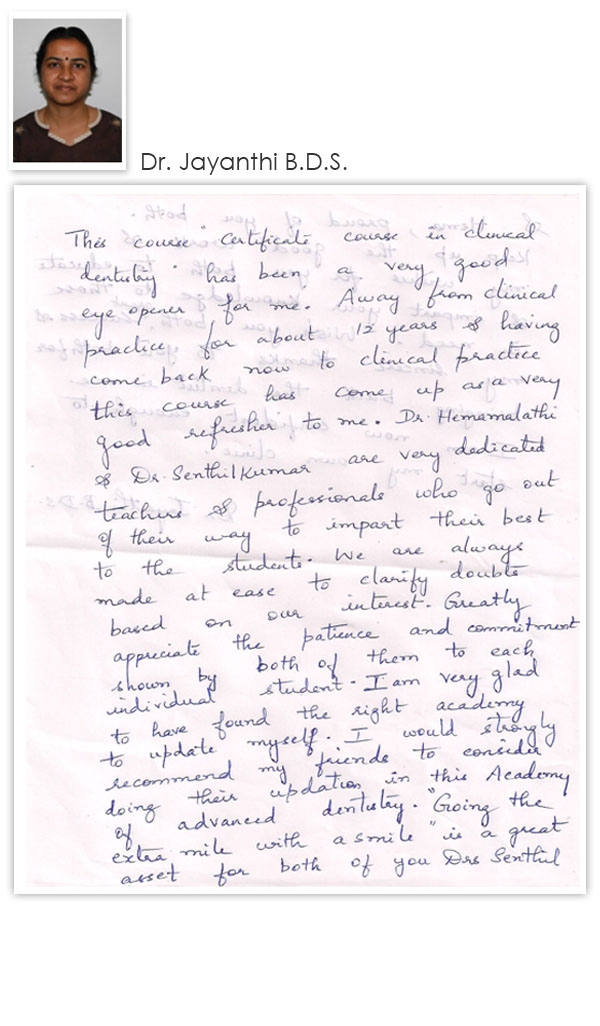 Dr. Jayanthi B.D.S.
This course "Certificate course in clinical
dentistry" has been a very good
eye opener for me. Away from clinical
practice for about 12 years & having
come back now to clinical practice
this course has come up as a very
good refresher to me. Dr. Hemamalathi
& Dr. Senthilkumar are very dedicated
teachers & professionals who go out
of their way to impart their best
to the students. We are always
made at ease to clarify doubts
based on our interest. Greatly
appreciate the patience and commitment
shown by both of them to each
individual student. I am very glad
to have found the right academy
to update myself. I would strongly
recommend my friends to consider
doing their updation in this Academy
of advanced dentistry. "Going the
extra mile with a smile" is a great
asset for both of you Drs Senthil